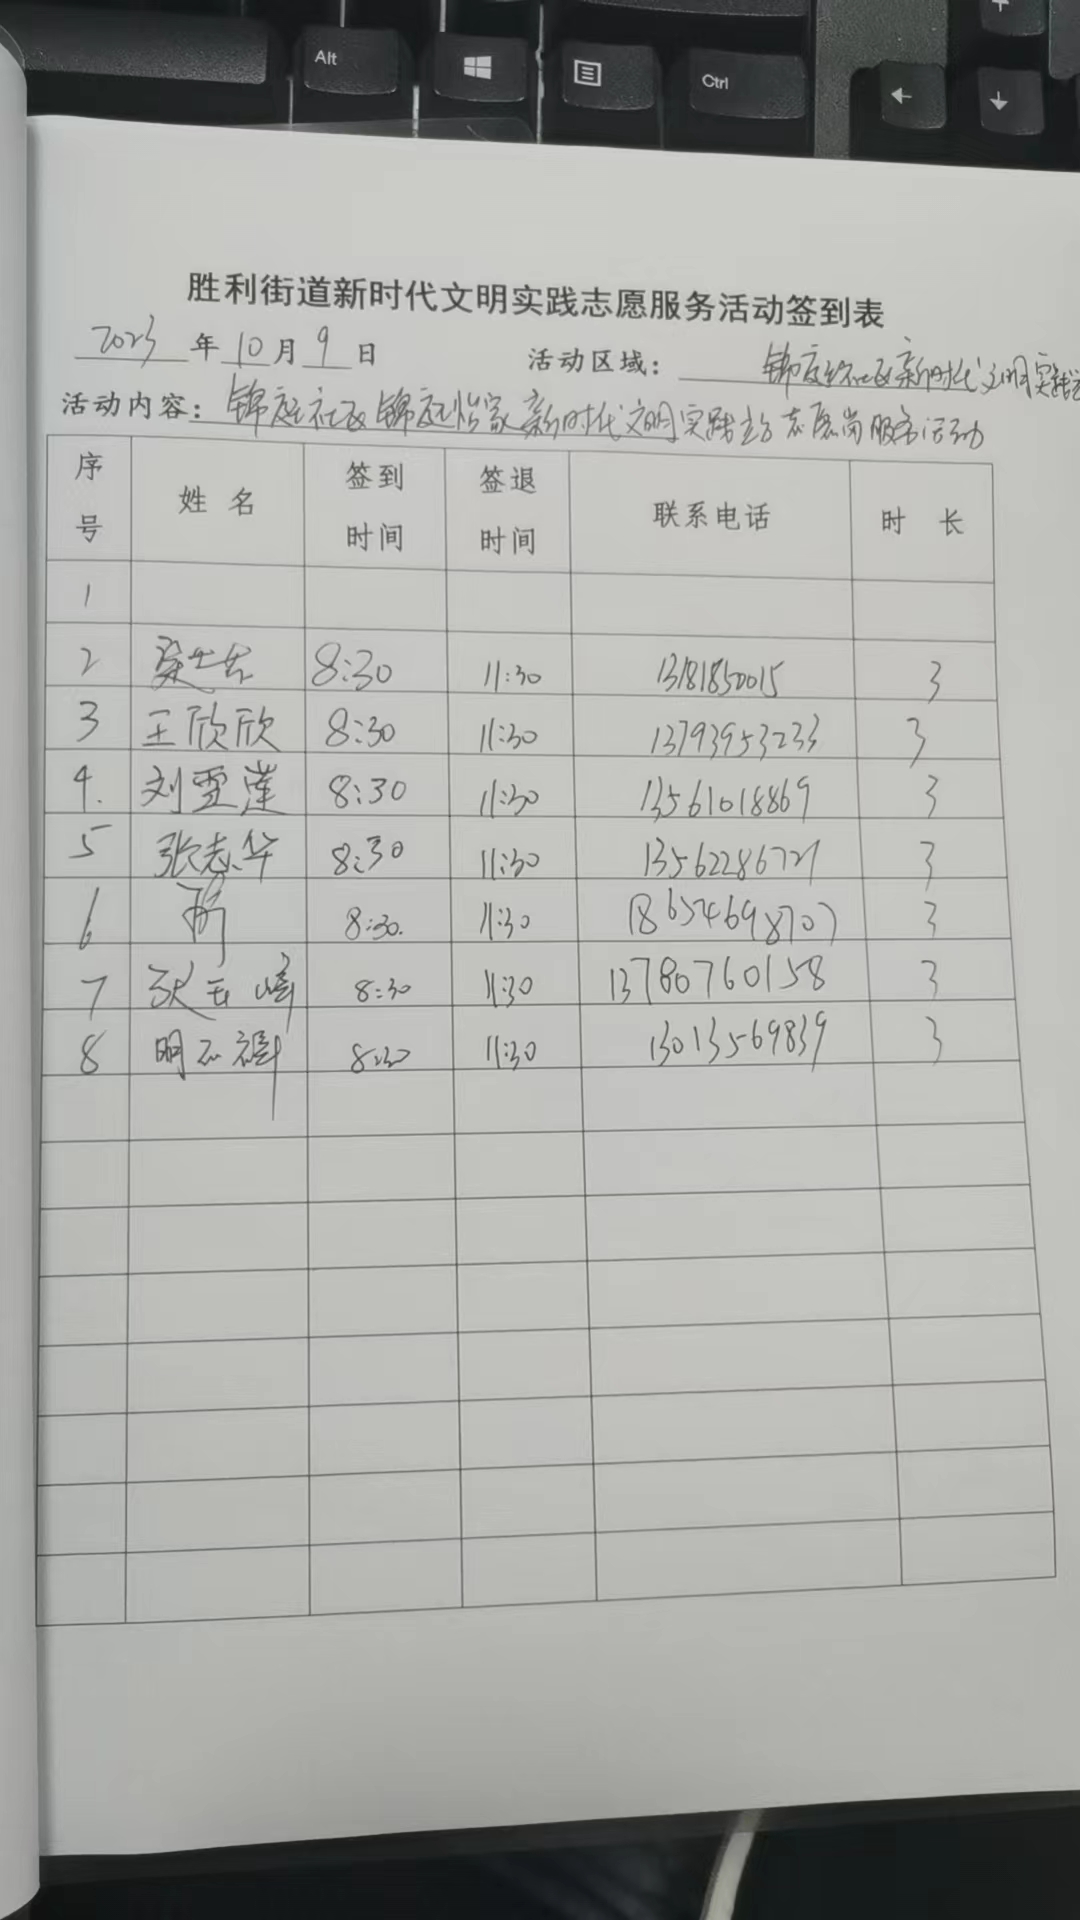 Alt
Ctrl
胜利街道新时代文明实践志愿服务活动签到表
2023 年 10 月 9 日 活动区域： 锦庭社区新时代文明实践
活动内容：锦庭社区锦庭怡家新时代文明实践站志愿岗服务活动
序号 姓名 签到时间 签退时间 联系电话 时长
1
2 8:30 11:30 13181850015 3
3 王欣欣 8:30 11:30 13793953233 3
4. 刘雯莲 8:30 11:30 13561018869 3
5 张志华 8:30 11:30 13562286721 3
6 8:30. 11:30 18654698707 3
7 玉峰 8:30 11:30 13780760158 3
8 明 8:30 11:30 13013569839 3